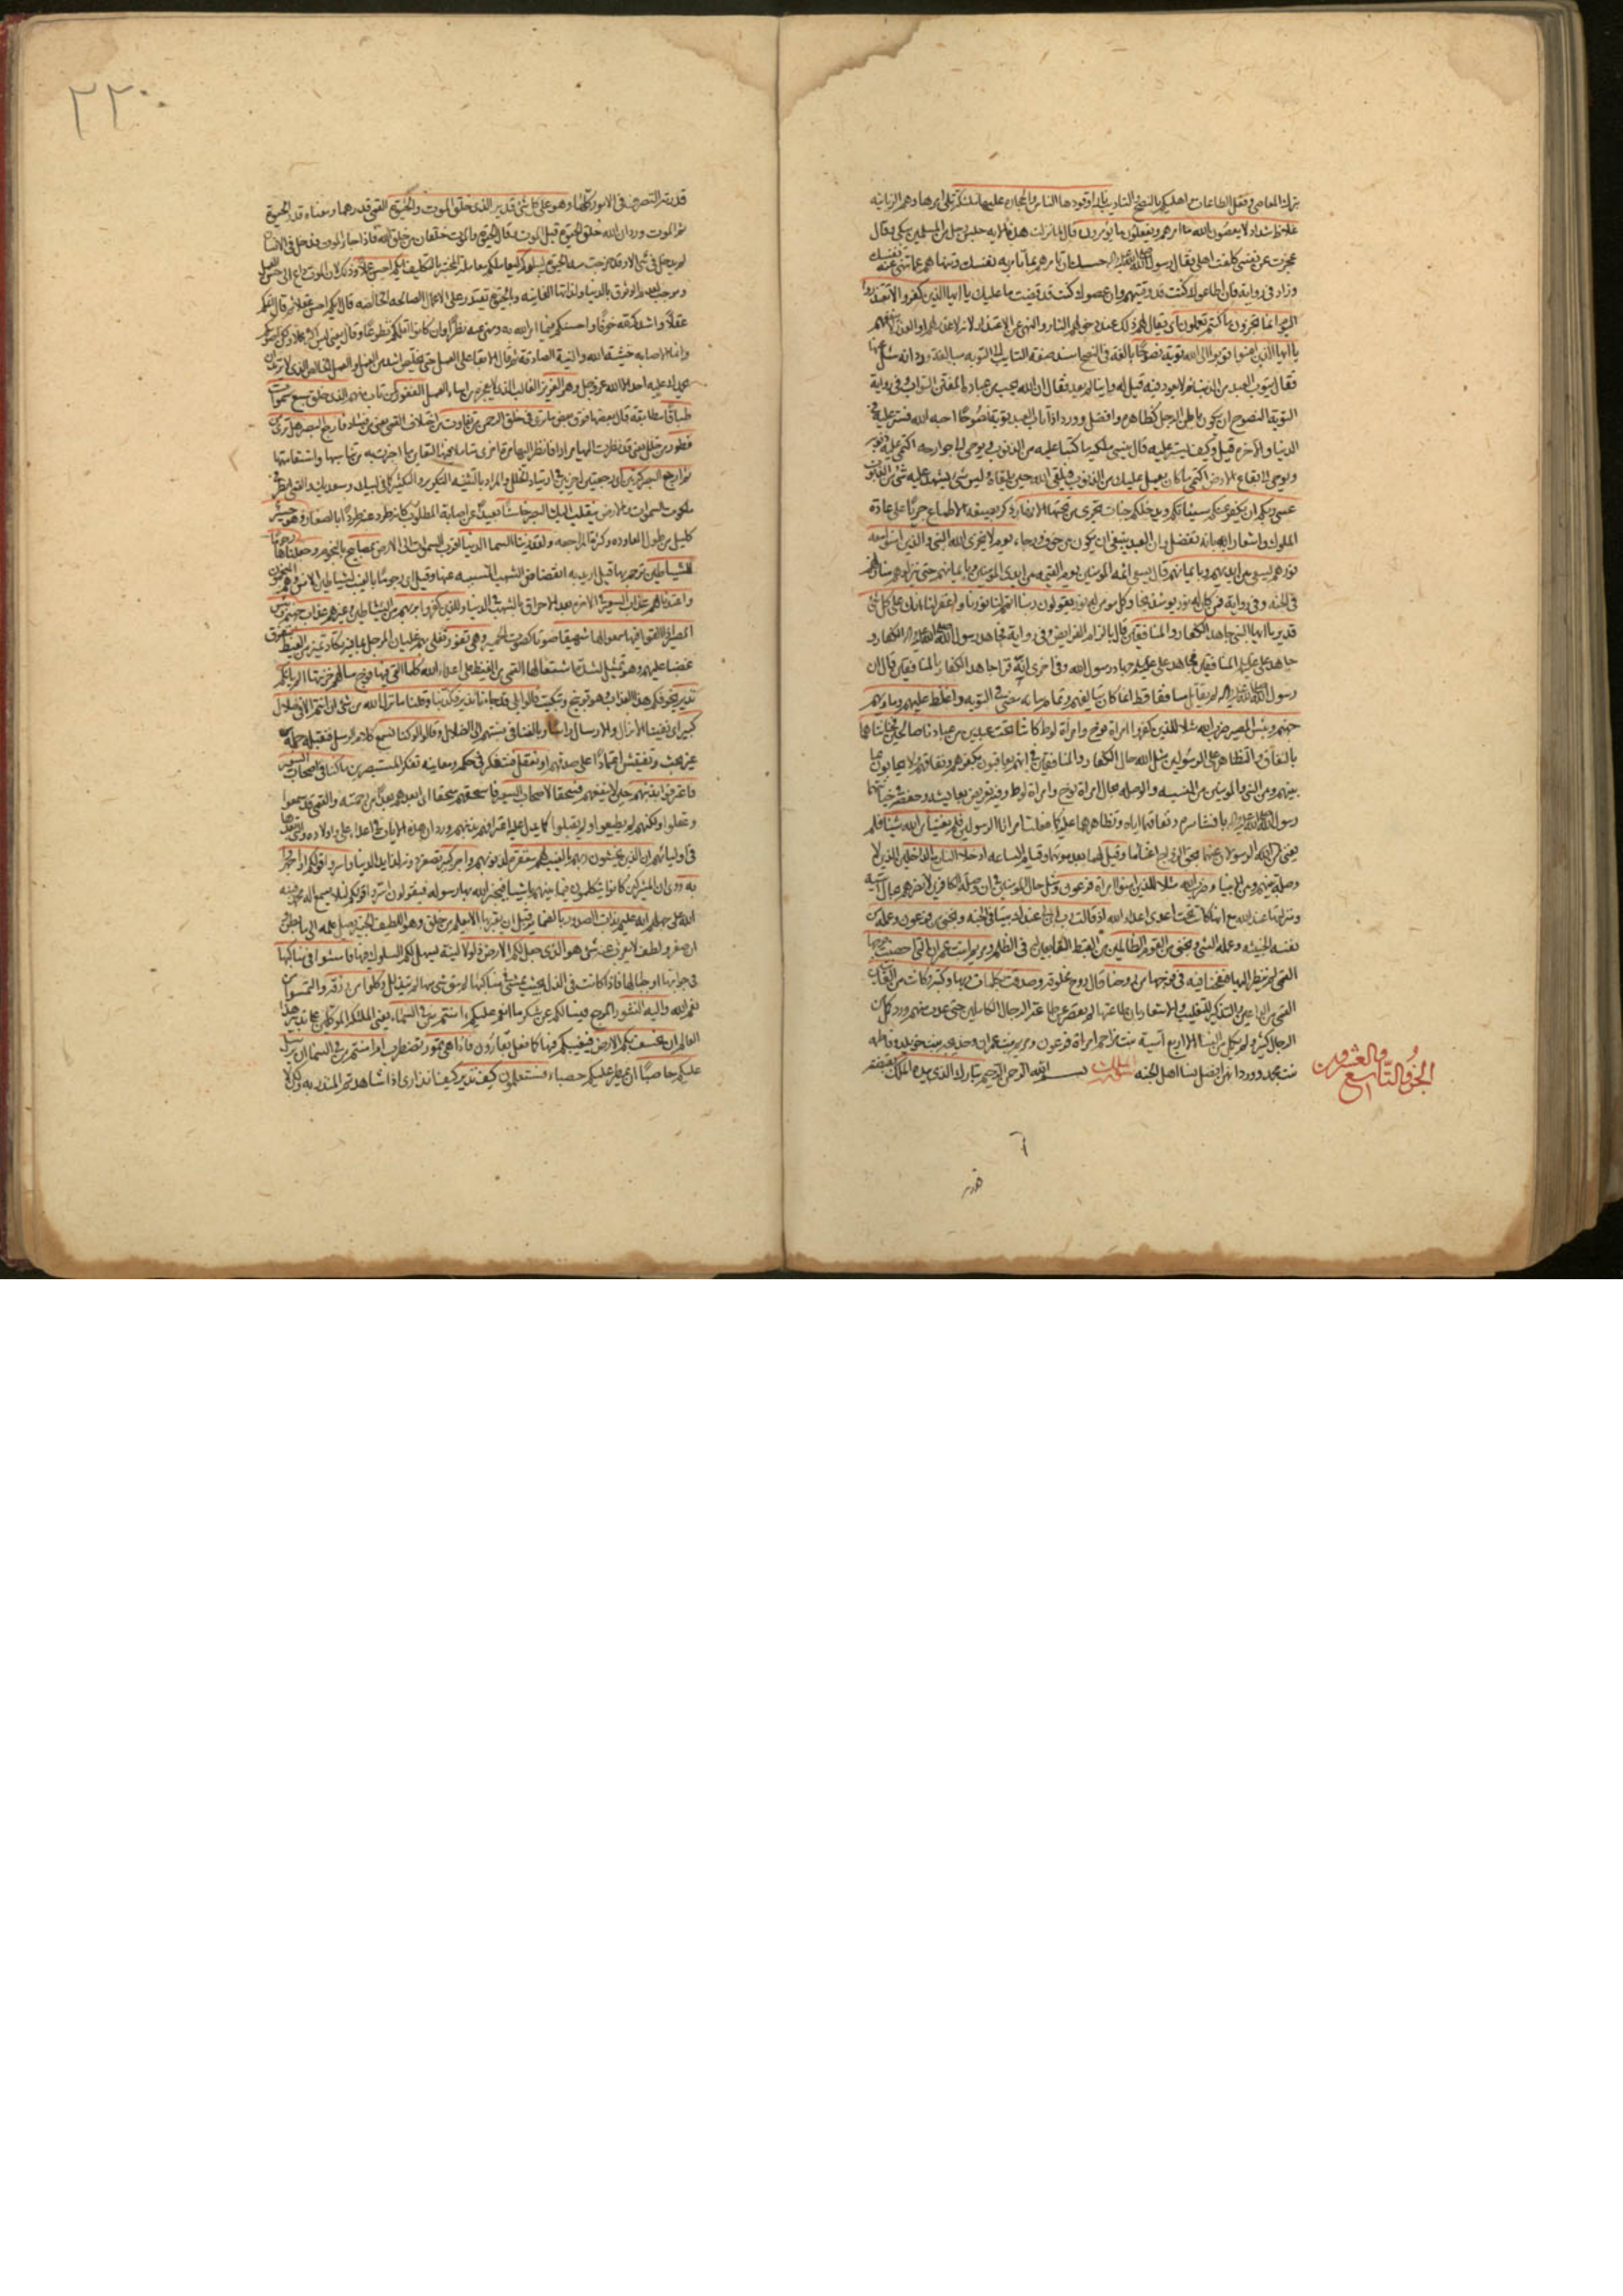 بترك المعاصي وفعل الطاعات واهليكم بالنصح والتاديب نارا وقودها الناس والحجارة عليها ملئكة تلي امرها وهم الزبانية
غلاظ شداد لا يعصون الله ما امرهم ويفعلون ما يؤمرون قال لما نزلت هذه الاية جلس رجل من المسلمين يبكي وقال
عجزت عن نفسي كلفت اهلي فقال رسول الله حسبك ان تامرهم بما تامر به نفسك وتنهاهم عما تنهى عنه نفسك
وزاد في رواية فان اطاعوك كنت قد وقيتهم وان عصوك كنت قد قضيت ما عليك يا ايها الذين كفروا لا تعتذروا
اليوم انما تجزون ما كنتم تعملون اي يقال لهم ذلك عند دخولهم النار والنهي عن الاعتذار لانه لا عذر لهم او العذر لا ينفعهم
يا ايها الذين امنوا توبوا الى الله توبة نصوحا بالغة في النصح
فقال يتوب العبد من الذنب ثم لا يعود فيه قيل له واينا لم يعد فقال ان الله يحب من عباده المفتن التواب وفي رواية
التوبة النصوح ان يكون باطن الرجل كظاهره وافضل وورد اذا تاب العبد توبة نصوحا احبه الله فستر عليه في
الدنيا والاخرة قيل وكيف يستر عليه قال ينسي ملكيه ما كتبا عليه من الذنوب ويوحي الى جوارحه اكتمي عليه ذنوبه
ويوحي الى بقاع الارض اكتمي ما كان يعمل عليك من الذنوب فيلقى الله حين يلقاه وليس شئ يشهد عليه بشئ من الذنوب
عسى ربكم ان يكفر عنكم سيئاتكم ويدخلكم جنات تجري من تحتها الانهار ذكر بصيغة الاطماع جريا على عادة
الملوك واشعارا بانه تفضل وان العبد ينبغي ان يكون بين خوف ورجاء يوم لا يخزي الله النبي والذين امنوا معه
نورهم يسعى بين ايديهم وبايمانهم قال يسعى ائمة المؤمنين يوم القيمة بين ايدي المؤمنين وبايمانهم حتى ينزلوهم منازلهم
في الجنة وفي رواية فمن كان له نور يومئذ نجا وكل مؤمن له نور يقولون ربنا اتمم لنا نورنا واغفر لنا انك على كل شئ
قدير يا ايها النبي جاهد الكفار والمنافقين قال بالزام الفرايض وفي رواية فجاهد رسول الله الكفار و
جاهد علي المنافقين فجاهد علي جهاد رسول الله وفي اخرى انه قرا جاهد الكفار بالمنافقين قال ان
رسول الله لم يقاتل منافقا قط انما كان يتألفهم وتمام بيانه مضى في التوبة واغلظ عليهم وماويهم
جهنم وبئس المصير ضرب الله مثلا للذين كفروا امراة نوح وامراة لوط كانتا تحت عبدين من عبادنا صالحين فخانتاهما
بالنفاق والتظاهر على الرسولين مثل الله حال الكفار والمنافقين في انهم يعاقبون بكفرهم ونفاقهم ولا يحابون بما
بينهم وبين النبي والمؤمنين من النسبة والوصلة بحال امراة نوح وامراة لوط وفيه تعريض بعايشة وحفصة في خيانتهما
رسول الله بافشاء سره ونفاقهما اياه وتظاهرهما عليه كما فعلت امراتا الرسولين فلم يغنيا من الله شيئا فلم
يغن الرسولان عنهما بحق الزواج اغناء ما وقيل لهما بعد موتهما وقيام الساعة ادخلا النار مع الداخلين الذين لا
وصلة بينهم وبين الانبيا وضرب الله مثلا للذين امنوا امراة فرعون مثل حال المؤمنين في ان وصلة الكافرين لا تضرهم بحال آسية
ومنزلتها عند الله مع انها كانت تحت اعدى اعداء الله اذ قالت رب ابن لي عندك بيتا في الجنة ونجني من فرعون وعمله من
نفسه الخبيثة وعمله السئ ونجني من القوم الظالمين من القبط التابعين له في الظلم ومريم ابنت عمران التي احصنت فرجها
القمي لم ينظر اليها فنفخنا فيه في فرجها من روحنا قال روح مخلوقة وصدقت بكلمات ربها وكتبه وكانت من القانتين
القمي من الداعين والتذكير للتغليب والاشعار بان طاعتها لم يقصر عن طاعة الرجال الكاملين حتى عدت منهم وورد كمل من
الرجال كثير ولم يكمل من النساء الا اربع آسية بنت مزاحم امراة فرعون ومريم بنت عمران وخديجة بنت خويلد وفاطمة
بنت محمد وورد انهن افضل نساء اهل الجنة سورة الملك بسم الله الرحمن الرحيم تبارك الذي بيده الملك بقبضة
الجزء التاسع والعشرون
قدر
٢٢٠
قدرته التصرف في الامور كلها وهو على كل شئ قدير الذي خلق الموت والحيوة القمي قدرهما ومعناه قدر الحيوة
ثم الموت وورد ان الله خلق الحيوة قبل الموت وقال الحيوة والموت خلقان من خلق الله فاذا جاء الموت فدخل في الانسان
لم يدخل في شئ الا وقد خرجت منه الحيوة ليبلوكم ليعاملكم معاملة المختبر بالتكليف ايكم احسن عملا وذلك لان الموت داع الى حسن العمل
وموجب لعدم الوثوق بالدنيا ولذاتها الفانية والحيوة يقتدر على الاعمال الصالحة الخالصة قال ايكم احسن عقلا ثم قال اتمكم
عقلا واشدكم لله خوفا واحسنكم فيما امر الله به ونهى عنه نظرا وان كانوا اقلكم تطوعا وقال ليس يعني اكثركم عملا ولكن اصوبكم
وانما الاصابة خشية الله والنية الصادقة ثم قال الابقاء على العمل حتى يخلص اشد من العمل والعمل الخالص الذي لا تريد ان
يحمدك عليه احد الا الله عز وجل وهو العزيز الغالب الذي لا يعجزه من اساء العمل الغفور لمن تاب منهم الذي خلق سبع سموات
طباقا مطابقة قال بعضها فوق بعض ما ترى في خلق الرحمن من تفاوت من اختلاف القمي يعني من فساد فارجع البصر هل ترى من
فطور من خلل يعني قد نظرت اليها مرارا فانظر اليها مرة اخرى متاملا فيها لتعاين ما اخبرت به من تناسبها واستقامتها
ثم ارجع البصر كرتين اي رجعتين اخريين في ارتياد الخلل والمراد بالتثنية التكرير والتكثير كما في لبيك وسعديك والقمي انظر في
ملكوت السموات والارض ينقلب اليك البصر خاسئا بعيدا عن اصابة المطلوب كانه طرد عنه طردا بالصغار وهو حسير
كليل من طول المعاودة وكثرة المراجعة ولقد زينا السماء الدنيا اقرب السموات الى الارض بمصابيح بالنجوم وجعلناها رجوما
للشياطين ترجم بها قيل اريد به انقضاض الشهب المسببة عنها وقيل اي رجوما بالغيب لشياطين الانس وهم المنجمون
واعتدنا لهم عذاب السعير في الاخرة بعد الاحراق بالشهب في الدنيا وللذين كفروا بربهم من الشياطين وغيرهم عذاب جهنم وبئس
المصير اذا القوا فيها سمعوا لها شهيقا صوتا كصوت الحمير وهي تفور تغلي بهم غليان المرجل بما فيه تكاد تميز من الغيظ تتفرق
غضبا عليهم وهو تمثيل لشدة اشتعالها القمي من الغيظ على اعداء الله كلما القي فيها فوج سالهم خزنتها الم ياتكم
نذير يخوفكم هذا العذاب وهو توبيخ وتبكيت قالوا بلى قد جاءنا نذير فكذبنا وقلنا ما نزل الله من شئ ان انتم الا في ضلال
كبير اي نفينا الانزال والارسال راسا وبالغنا في نسبتهم الى الضلال وقالوا لو كنا نسمع كلام الرسل فنقبله جملة من
غير بحث وتفتيش اعتمادا على صدقهم او نعقل فنتفكر في حكمه ومعانيه تفكر المستبصرين ما كنا في اصحاب السعير
فاعترفوا بذنبهم حين لا ينفعهم فسحقا لاصحاب السعير فاسحقهم سحقا اي ابعدهم بعدا من رحمته والقمي قد سمعوا
وعقلوا ولكنهم لم يطيعوا ولم يقبلوا كما يدل عليه اعترافهم بذنبهم وورد ان هذه الايات في اعداء علي واولاده والتي بعدها
في اوليائهم ان الذين يخشون ربهم بالغيب لهم مغفرة لذنوبهم واجر كبير تصغر دونه لذايذ الدنيا واسروا قولكم او اجهروا
به روي ان المشركين كانوا يتكلمون فيما بينهم باشياء فيخبر الله بها رسوله فيقولون اسروا قولكم لئلا يسمع اله محمد فنبه
الله على جهلهم انه عليم بذات الصدور بالضماير قبل ان يعبر بها الا يعلم من خلق وهو اللطيف الخبير يصل علمه الى ما بطن
ان صغر ولطف لا يعزب عنه شئ هو الذي جعل لكم الارض ذلولا لينة ليسهل لكم السلوك فيها فامشوا في مناكبها
في جوانبها او جبالها فاذا كانت في الذل بحيث يمشى في مناكبها لم يبق شئ منها لم يتذلل وكلوا من رزقه والتمسوا من
نعم الله واليه النشور المرجع فيسالكم عن شكر ما انعم عليكم ءامنتم من في السماء يعني الملئكة الموكلين على تدبير هذا
العالم ان يخسف بكم الارض فيغيبكم فيها كما فعل بقارون فاذا هي تمور تضطرب ام امنتم من في السماء ان يرسل
عليكم حاصبا ان يمطر عليكم حصباء فستعلمون كيف نذير كيف انذاري اذا شاهدتم المنذر به ولكن لا